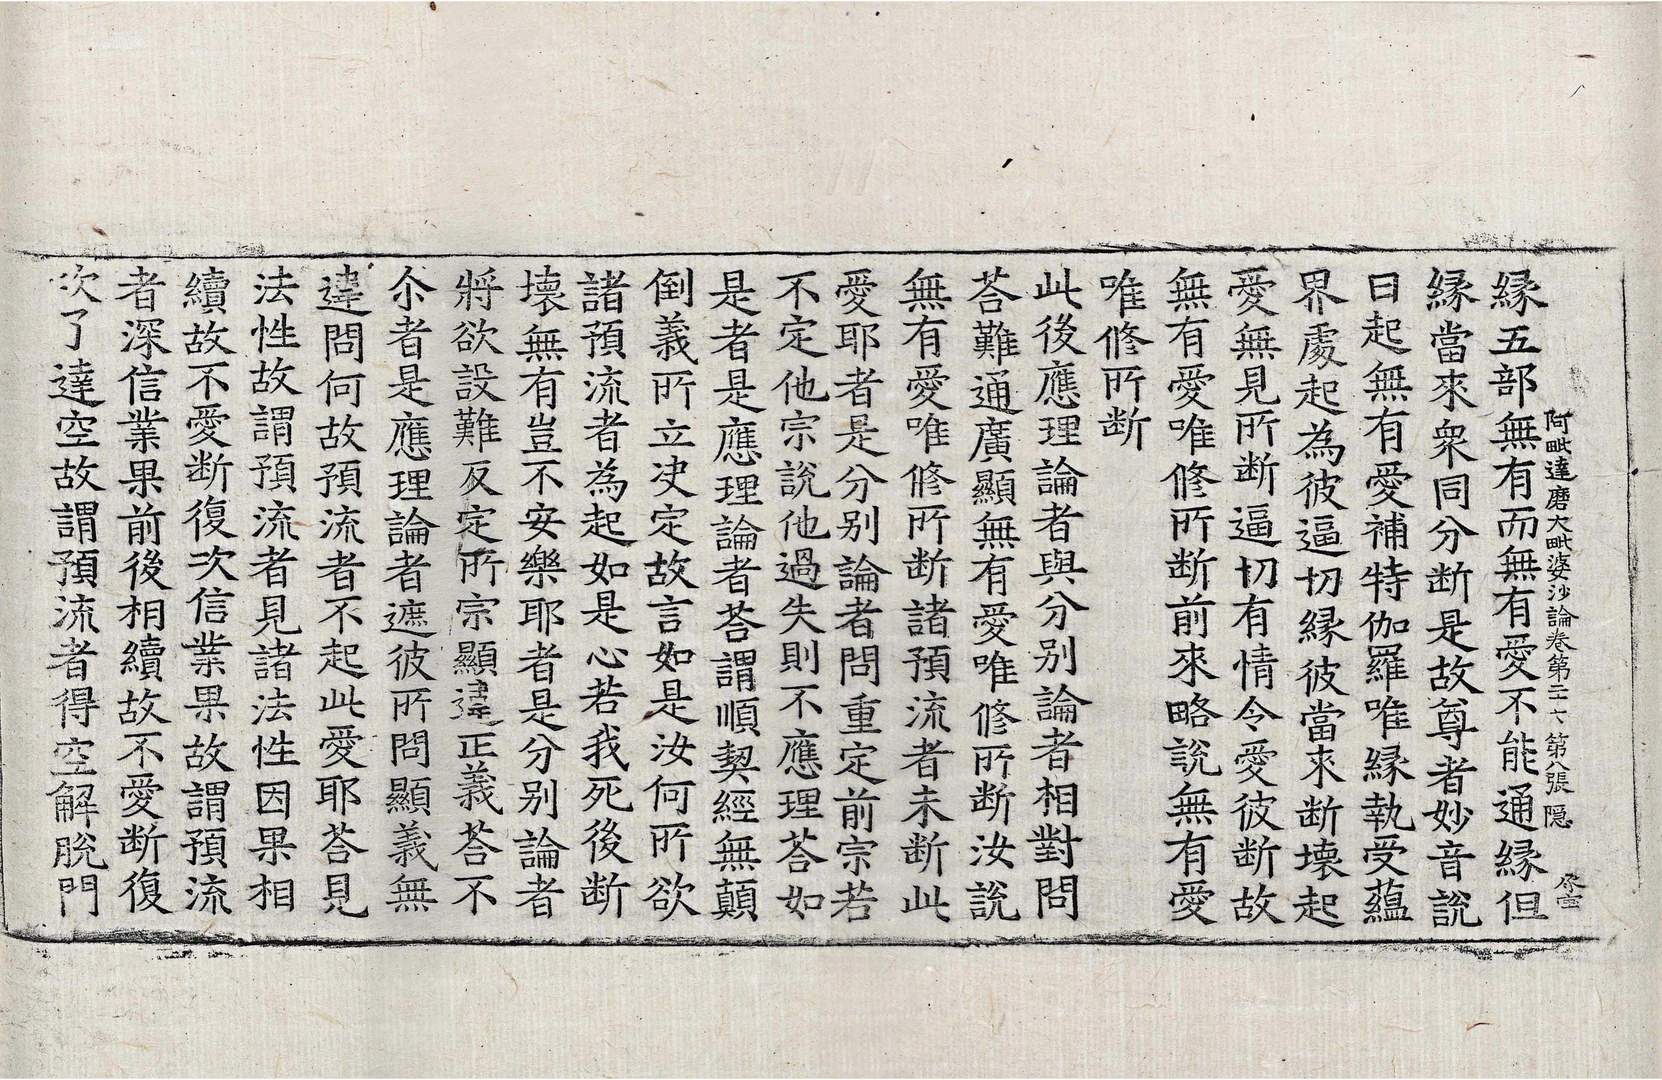 阿毗達磨大毗婆沙論卷第二十七 第八張 隱
緣五部無有而無有愛不能通緣但
緣當來衆同分断是故尊者妙音說
曰起無有愛補特伽羅唯緣執受蘊
界處起為彼逼切緣彼當來断壞起
愛無見所断逼切有情令愛彼断故
無有愛唯修所断前來略說無有愛
唯修所断
此後應理論者與分別論者相對問
荅難通廣顯無有愛唯修所断汝說
無有愛唯修所断諸預流者未断此
愛耶者是分別論者問重定前宗若
不定他宗說他過失則不應理荅如
是者是應理論者荅謂順契經無顛
倒義所立决定故言如是汝何所欲
諸預流者為起如是心若我死後断
壞無有豈不安樂耶者是分別論者
將欲設難反定所宗顯違正義荅不
尒者是應理論者遮彼所問顯義無
違問何故預流者不起此愛耶荅見
法性故謂預流者見諸法性因果相
續故不愛断復次信業果故謂預流
者深信業果前後相續故不愛断復
次了達空故謂預流者得空解脫門